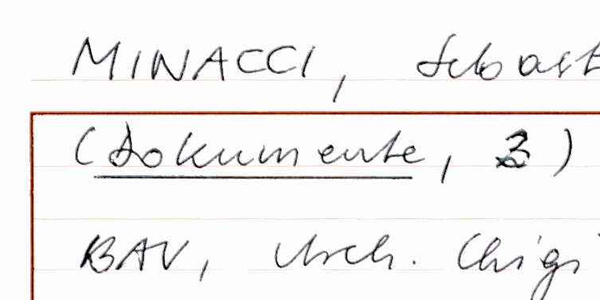 MINACCI, Sebast
(Dokumente, 3)
BAV, Arch. Chigi